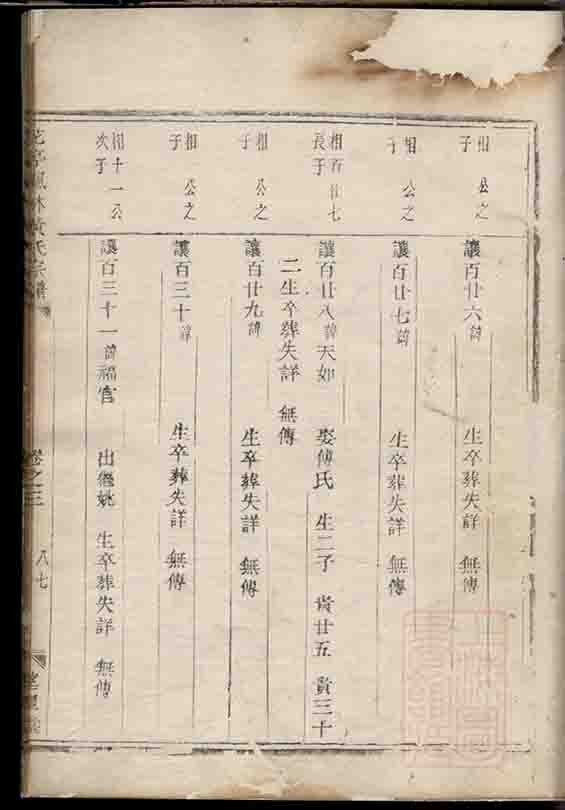 相 公之
子
讓百廿六諱 生卒葬失詳 無傳
相 公之
子
讓百廿七諱 生卒葬失詳 無傳
相百廿七
長子
讓百廿八諱天如 娶傅氏 生二子 貴廿五 貴三十
二生卒葬失詳 無傳
相 公之
子
讓百廿九諱 生卒葬失詳 無傳
相 公之
子
讓百三十諱 生卒葬失詳 無傳
相十一公
次子
讓百三十一諱福官 出僊姚 生卒葬失詳 無傳
林黃氏宗譜
卷之三
八七